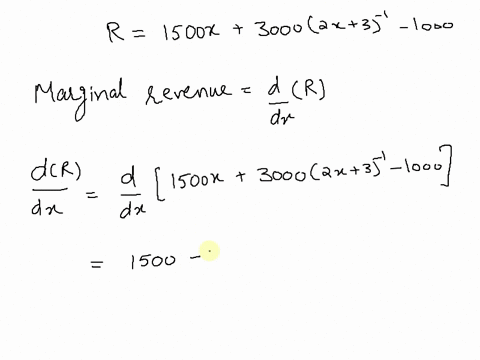 R = 1500x + 3000(2x+3)⁻¹ - 1000
Marginal revenue = d/dx (R)
d(R)/dx = d/dx [1500x + 3000(2x+3)⁻¹ - 1000]
= 1500 -